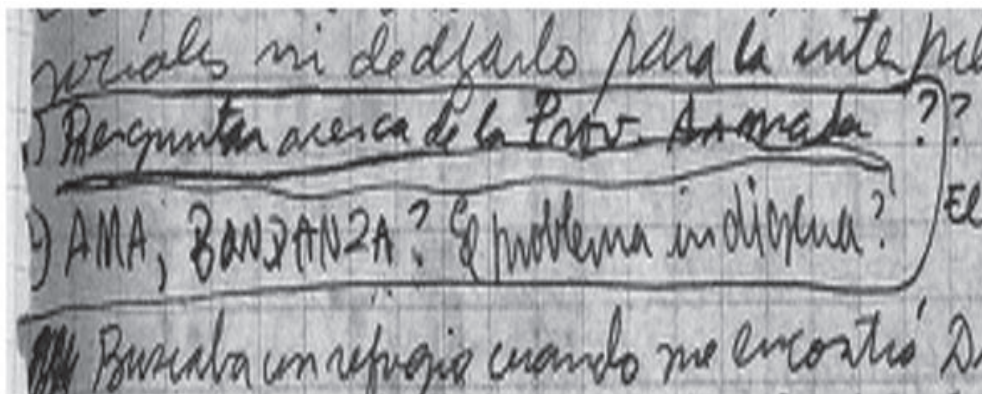 sociales ni dedgarlo para la inte
) Preguntar acerca de la Prov. Armada ??
) AMA, BONDANZA? El problema indigena? El
Buscaba un refugio cuando me encontró D